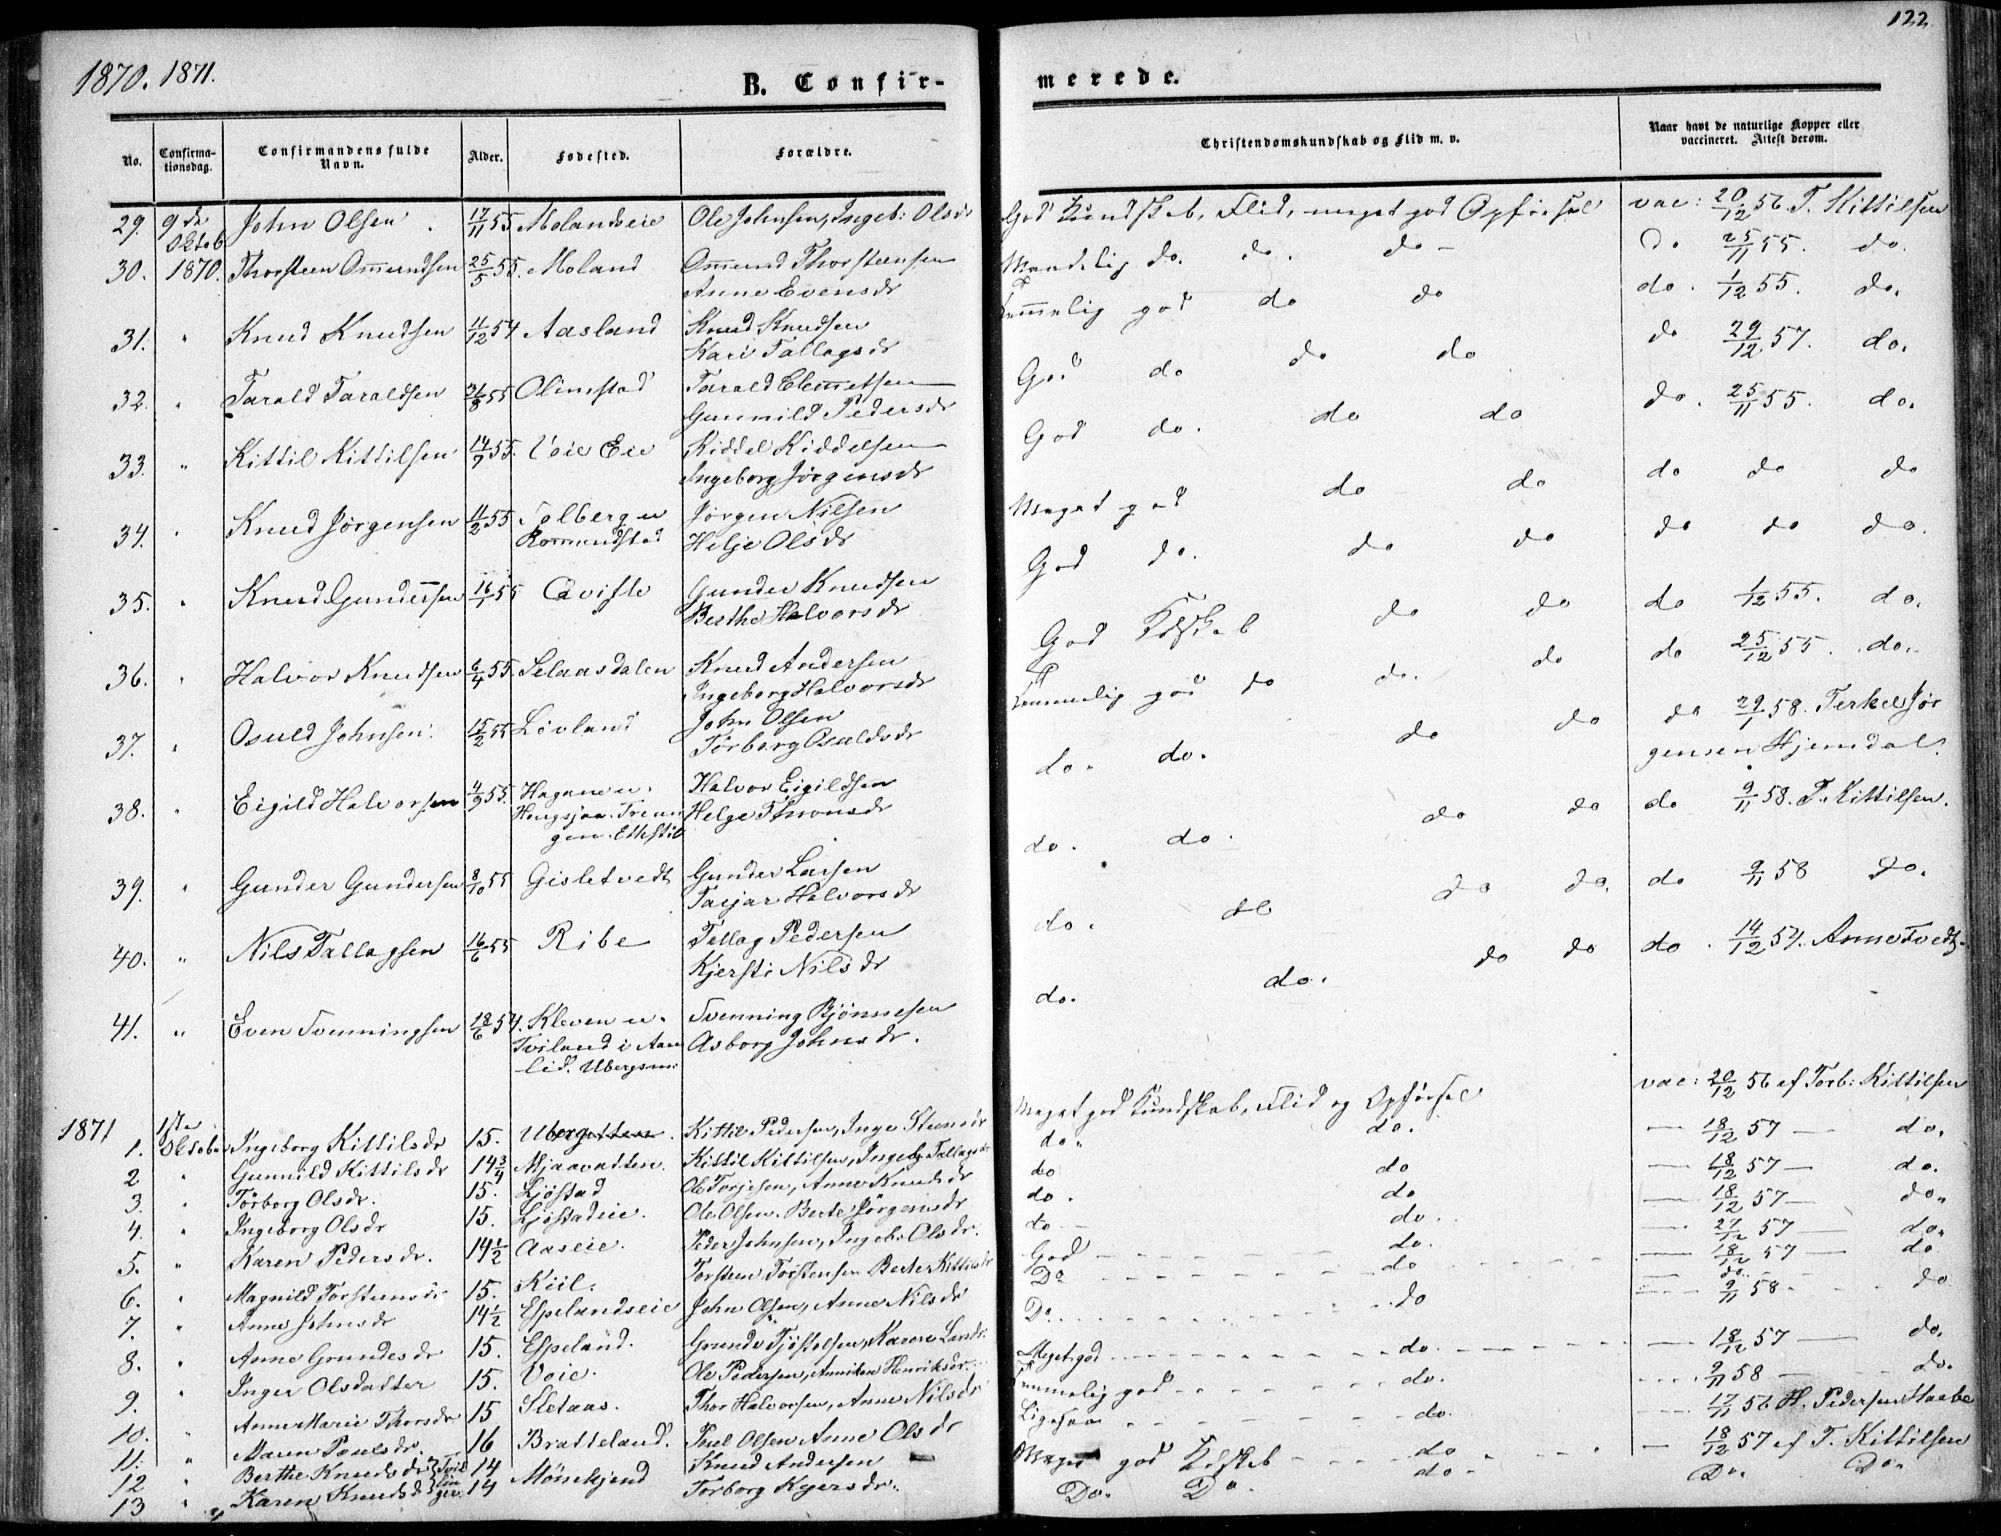 1870. 1871.
B. Confir-
merede.
122
No.
Confirma-
tionsdag.
Confirmandens fulde
Navn.
Alder.
Fødested.
Forældre.
Christendomskundskab og Flid m. v.
Naar havt de naturlige Kopper eller
vaccineret. Attest derom.
29. 9de John Olsen 17/11 55 Molandseie Ole Johnsen, Ingeb: Olsdr God Kundskab, Flid, meget god Opførsel vac: 20/12 56 T. Kittilsen
Oktob
30. 1870. Thorsteen Omundsen 25/5 55. Moland Omund Thorsteensen do. do. do - Do 25/11 55. do.
Anne Evensdr
31. " Knud Knudsen 11/12 54 Aasland Knud Knudsen Temmelig god do do do. 1/12 55. do.
Kari Tallagsdr
32. " Tarald Taraldsen 31/8 55 Olimstad Tarald Clemetsen God do do do do 29/12 57. do.
Gunnild Pedersdr
33. " Kittil Kittilsen 14/9 55. Voie Eie Kiddel Kiddelsen God do. do do do. 25/11 55. do.
Ingeborg Jörgensdr
34. " Knud Jørgensen 11/2 55 Solberg u Jørgen Nilsen Meget god do do do do do
Rommundstad Helje Olsdr
35. " Knud Gundersen 16/1 55 Qvifte Gunder Knudsen God do. do do do do do.
Berthe Halvorsdr
36. " Halvor Knudsen 6/4 55. Selaasdalen Knud Andersen God Kdskab do do do 1/12 55. do.
Ingeborg Halvorsdr
37. " Osuld Johnsen 15/2 55 Lövland John Olsen Temmelig god do do. do do 25/12 55. do.
Torborg Osuldsdr
38. " Eigild Halvorsen 4/9 55. Hagane u. Halvor Eigildsen do. do. do do do 29/1 58. Terkel Jør
Helge Thronsdr gensen Hjemdal.
39. " Gunder Gundersen 8/10 55 Gisletvedt Gunder Larsen do. do. do do do 9/11 58. T. Kittilsen.
Taijar Halvorsdr
40. " Nils Tallagsen 16/6 55 Ribe Tallag Pedersen do. do do do. do 9/11 58 Do.
Kjersti Nilsdr
41. " Even Svenningsen 18/6 54. Kleven u. Svenning Bjönnesen do. do. do do do. 14/12 54. Anne Tvedt
Tviland i Aam Asborg Johnsdr.
lid. Ubergsm:
1871 1ste
1. Oktober Ingeborg Kittilsdr 15. Kittil Pedersen, Inge Steensdr Meget god Kundskab, Flid og Opførsel vac: 20/12 56 af Torb: Kittilsen
2 " Gunnild Kittilsdr 14 3/4 Mjaavatten. Kittil Kittilsen, Ingeb: Tallagsdr do. do. — 18/12 57 — do.
3. " Torborg Olsdr. 15. Ljöstad Ole Torjesen, Anne Knudsdr do do — 18/12 57 — do.
4. " Ingeborg Olsdr 15. Ljöstadeie. Ole Olsen. Berte Jörgensdr do. do — 18/12 57 — do.
5. " Karen Pedersdr. 14 1/2 Aaseie. Peder Johnsen, Ingeb: Olsdr. do — do. — 27/12 57 — do.
6. " Magnild Torsteensdr 15. Kiil. Torsteen Torstensen Berte Kittilsdr God — do. — 18/12 57 — do
7. " Anne Johnsdr 14 1/2 Espelandseie John Olsen, Anne Nilsdr Do do do.
8. " Anne Grundesdr 15. Espeland. Grunde Tjöstolsen, Karen Larsdr. Do. do 9/11 58 - do
9. " Inger Olsdatter 15. Voie. Ole Pedersen, Anniken Henriksdr. Meget god do. — 18/12 57 — do.
10. " Anne Marie Thorsdr 15 Sletaas. Thor Halvorsen, Anne Nilsdr Temmelig god do. 9/11 58 do.
11. " Maren Poulsdr. 16 Bratteland. Poul Olsen Anne Olsdr Ligesaa do. 17/11 56 H. Pedersen
12 " Berthe Knudsdr } Tvil 14 Mönekjend Knud Andersen Meget god Kdskab do — 18/12 57 af T. Kittilsen
13 " Karen Knudsdr } lin ger. 14 Torborg Kjersdr. Do. Do. do - Do. Do.